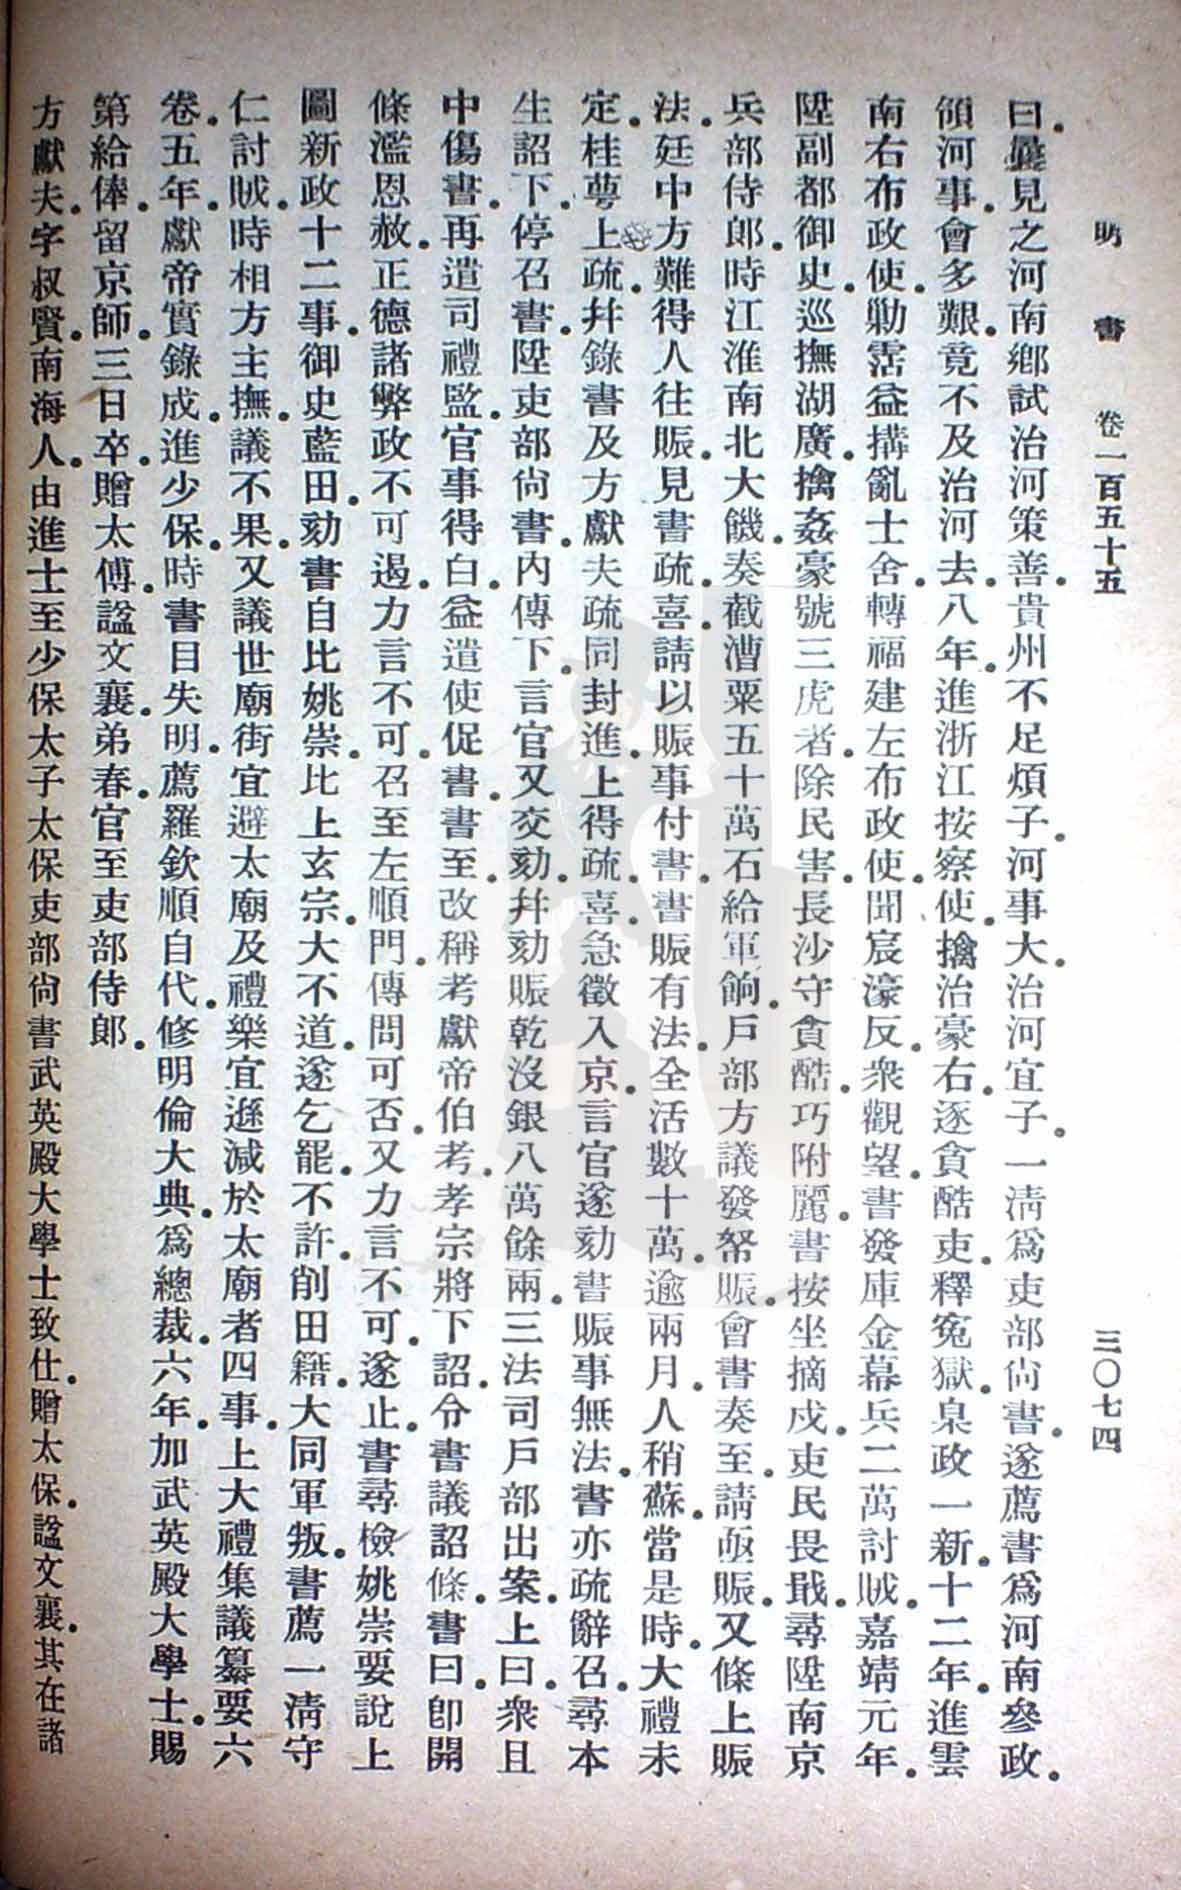 明書 卷一百五十五 三〇七四
曰曩見之河南鄉試治河策善貴州不足煩子河事大治河宜子一淸爲吏部尙書遂薦書爲河南參政
領河事會多艱竟不及治河去八年進浙江按察使擒治豪右逐貪酷吏釋冤獄臬政一新十二年進雲
南右布政使勦霑益搆亂士舍轉福建左布政使聞宸濠反衆觀望書發庫金募兵二萬討賊嘉靖元年
陞副都御史巡撫湖廣擒姦豪號三虎者除民害長沙守貪酷巧附麗書按坐摘戍吏民畏戢尋陞南京
兵部侍郞時江淮南北大饑奏截漕粟五十萬石給軍餉戶部方議發帑賑會書奏至請亟賑又條上賑
法廷中方難得人往賑見書疏喜請以賑事付書書賑有法全活數十萬逾兩月人稍蘇當是時大禮未
定桂萼上疏幷錄書及方獻夫疏同封進上得疏喜急徵入京言官遂劾書賑事無法書亦疏辭召尋本
生詔下停召書陞吏部尙書內傳下言官又交劾幷劾賑乾沒銀八萬餘兩三法司戶部出案上曰衆且
中傷書再遣司禮監官事得白益遣使促書書至改稱考獻帝伯考孝宗將下詔令書議詔條書曰卽開
條濫恩赦正德諸弊政不可遏力言不可召至左順門傳問可否又力言不可遂止書尋檢姚崇要說上
圖新政十二事御史藍田劾書自比姚崇比上玄宗大不道遂乞罷不許削田籍大同軍叛書薦一淸守
仁討賊時相方主撫議不果又議世廟街宜避太廟及禮樂宜遜減於太廟者四事上大禮集議纂要六
卷五年獻帝實錄成進少保時書目失明薦羅欽順自代修明倫大典爲總裁六年加武英殿大學士賜
第給俸留京師三日卒贈太傅諡文襄弟春官至吏部侍郞
方獻夫字叔賢南海人由進士至少保太子太保吏部尙書武英殿大學士致仕贈太保諡文襄其在諸